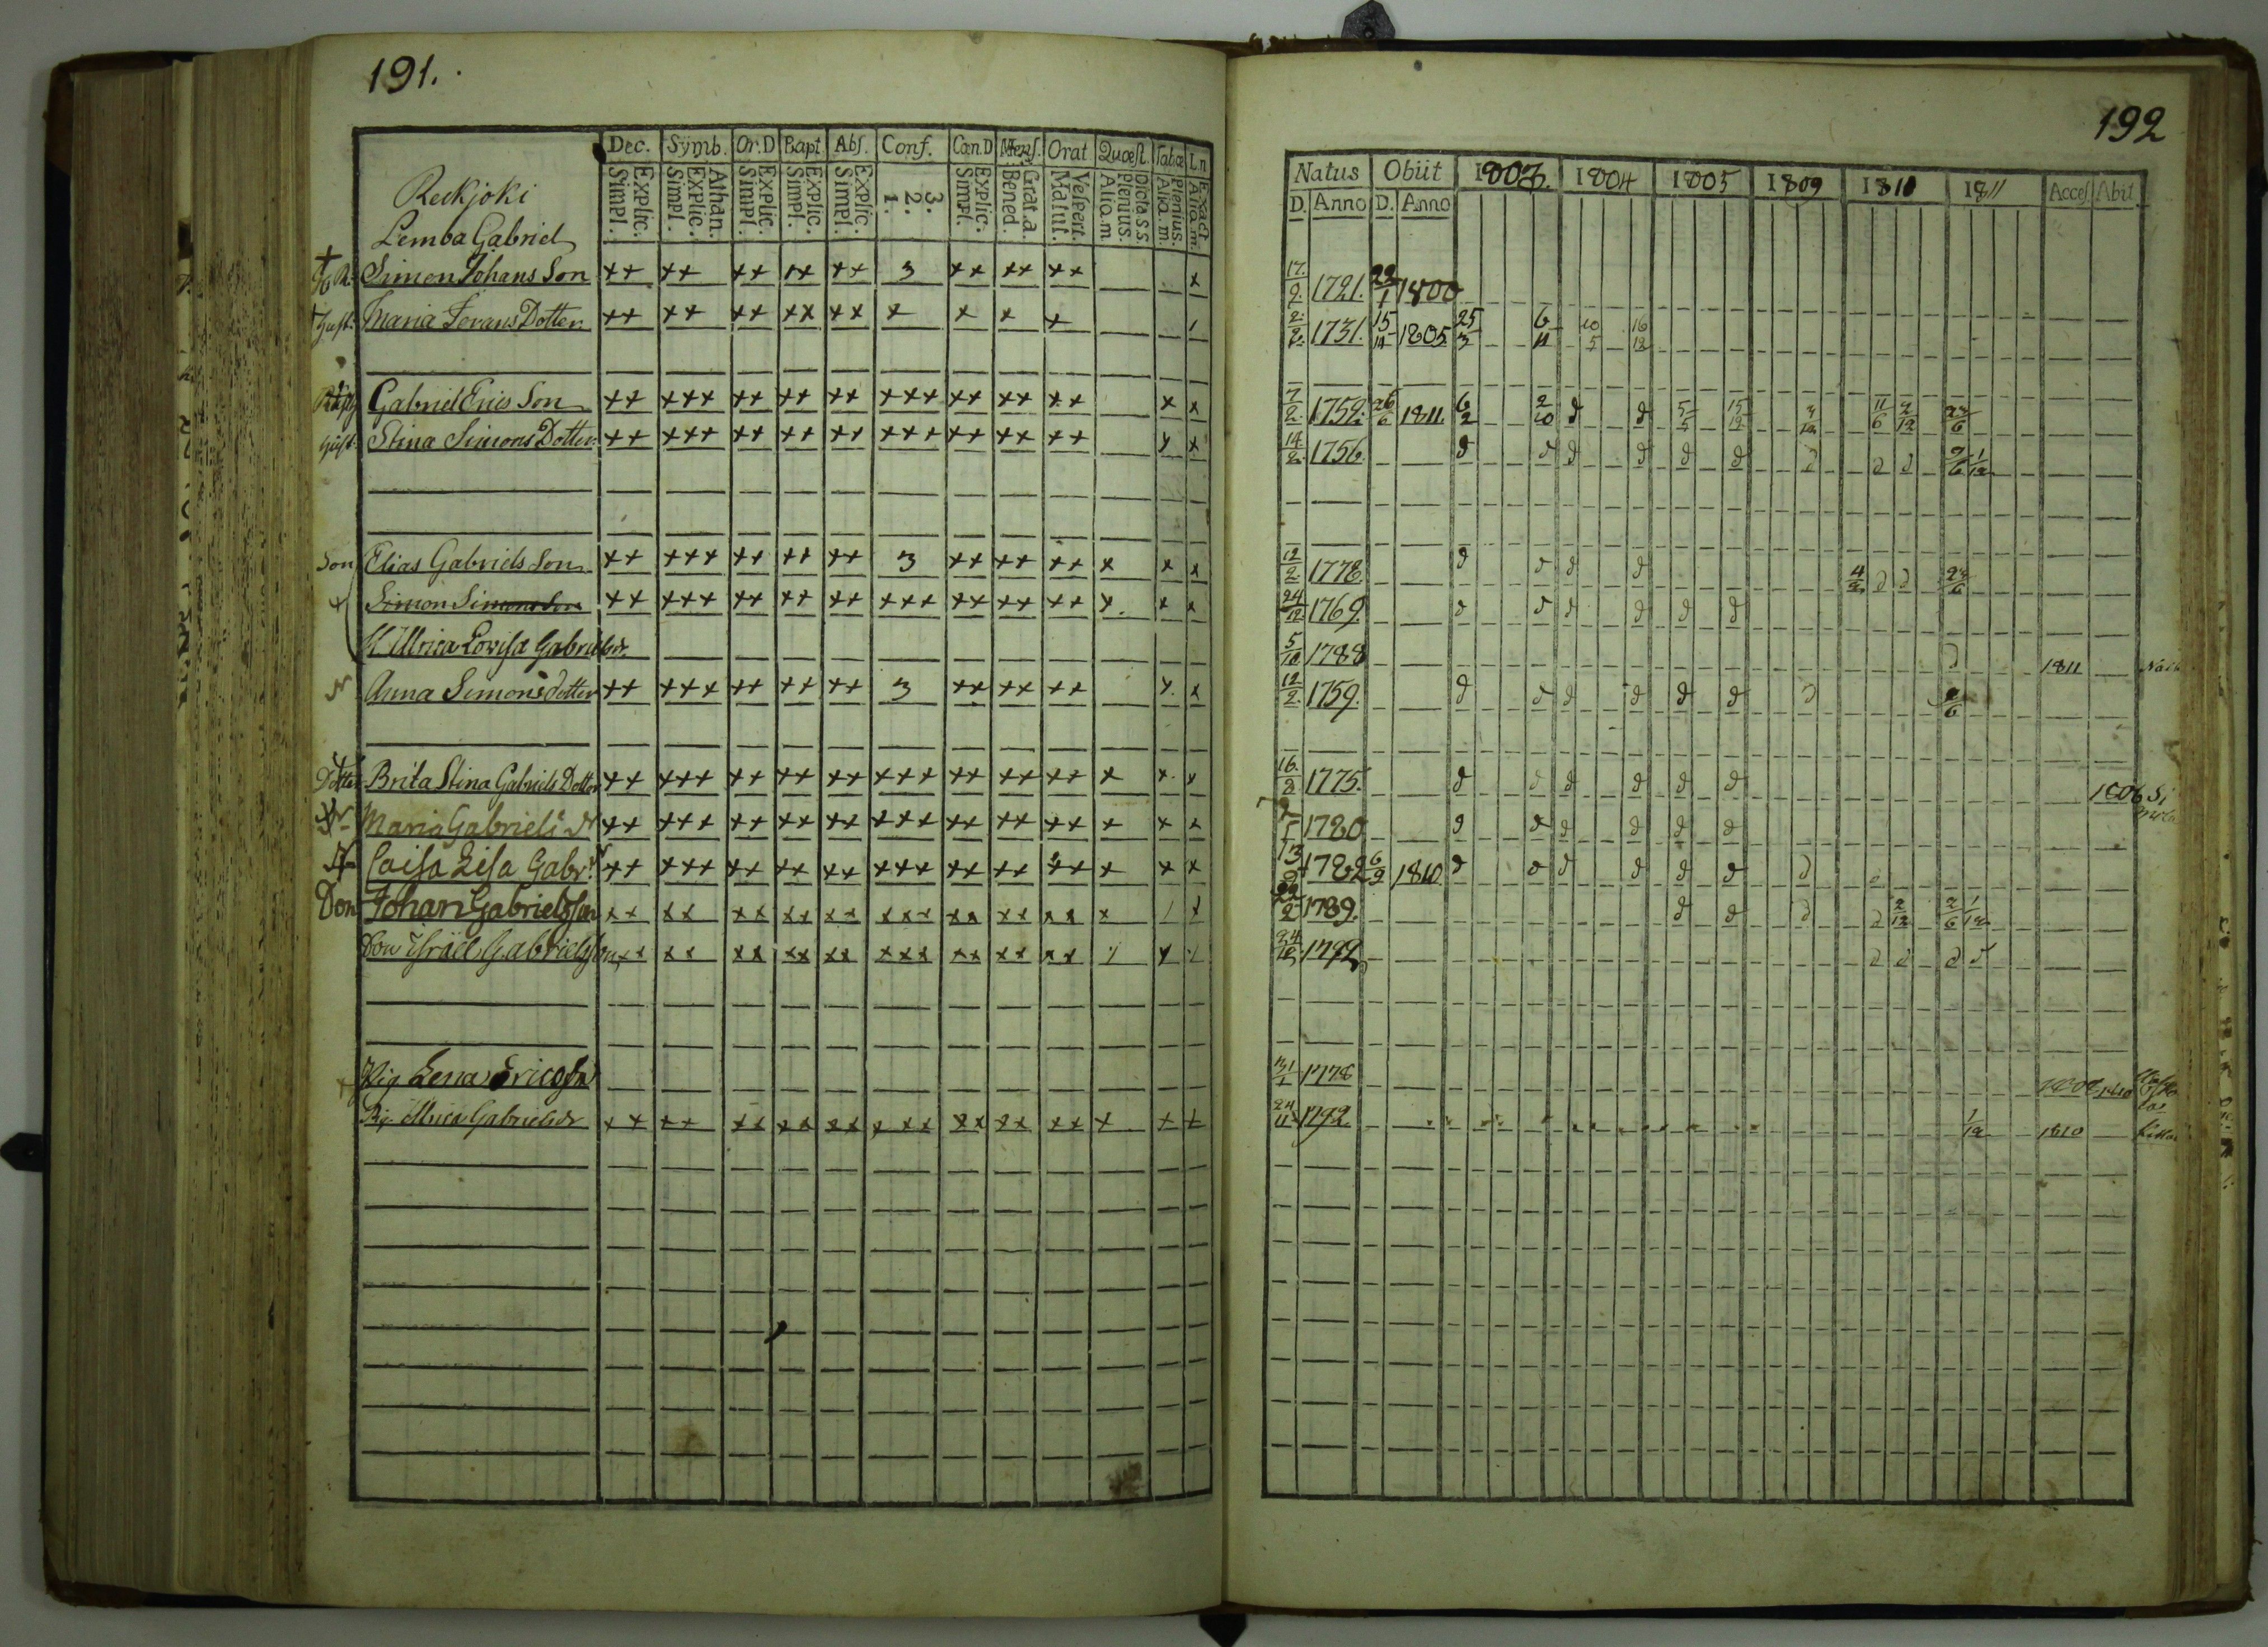 191.
Dec. Symb. Or.D Bapt. Abs. Conf. Cœn.D Mens. Orat. Quæst. Tabæ L.n
Explic. Simpl. Athan. Explic. Simpl. Explic. Simpl. Explic. Simpl. Explic. Simpl. 3. 2. 1. Explic. Simpl. Grat.a. Bened. Vespert. Matut. Dicta S.S. Plenius. Aliq.m Plenius. Aliq.m. Exact. Aliq.m.
Reckjoki
Lemba Gabriel
Simon Johans Son ++ ++ ++ ++ ++ 3 ++ ++ ++ x
Maria Dotter ++ ++ ++ ++ ++ + + + +
Gabriel Erics Son ++ +++ ++ ++ ++ +++ ++ ++ ++ x x
Stina Simons Dotter ++ +++ ++ ++ ++ +++ ++ ++ ++ x x
Son Elias Gabriels Son ++ +++ ++ ++ ++ 3 ++ ++ ++ x x x
Simon Simons Son ++ +++ ++ ++ ++ +++ ++ ++ ++ x x x
H. Ullrica Lowisa Gabrielsdr.
Anna Simons dotter ++ +++ ++ ++ ++ 3 ++ ++ ++ x x
Dotter Brita Stina Gabriels Dotter ++ +++ ++ ++ ++ +++ ++ ++ ++ x x x
Maria Gabriels dr ++ +++ ++ ++ ++ +++ ++ ++ ++ x x x
Caisa Lisa Gabr. ++ +++ ++ ++ ++ +++ ++ ++ ++ x x x
Son Johan Gabrielsson ++ ++ ++ ++ ++ +++ ++ ++ ++ x / x
Son Israel Gabrielsson ++ ++ ++ ++ ++ +++ ++ ++ ++
Pig Lena Ericsdr
Pig Ulrica Gabrielsdr ++ ++ ++ ++ ++ +++ ++ ++ ++ + + +
192
Natus Obiit 1803. 1804 1805 1809 1810 1811 Access. Abit.
D. Anno D. Anno
17/2. 1721. 22/1 1800
2/2. 1731. 15/11 1805 25/3 6/11 10/5 16/12
7/2. 1752. 26/6 1811. 6/2 2/10 d d 5/5 15/12 11/6 2/12 23/6
14/2. 1756. d d d d d d d d d 2/6 1/12
12/2. 1778. d d d d 4/2 d d 23/6
24/12 1769. d d d d d d
5/10 1788 d 1811
12/2. 1759. d d d d d d d 2/6
16/2 1775. d d d d d d 1806
1780 d d d d d d
13/9 1782 6/9 1810 d d d d d d d
22/2 1789. d d d d 2/12 2/6 1/12
24/12 1792 d d d d
31/1 1778 1810
24/11 1792 1/12 1810